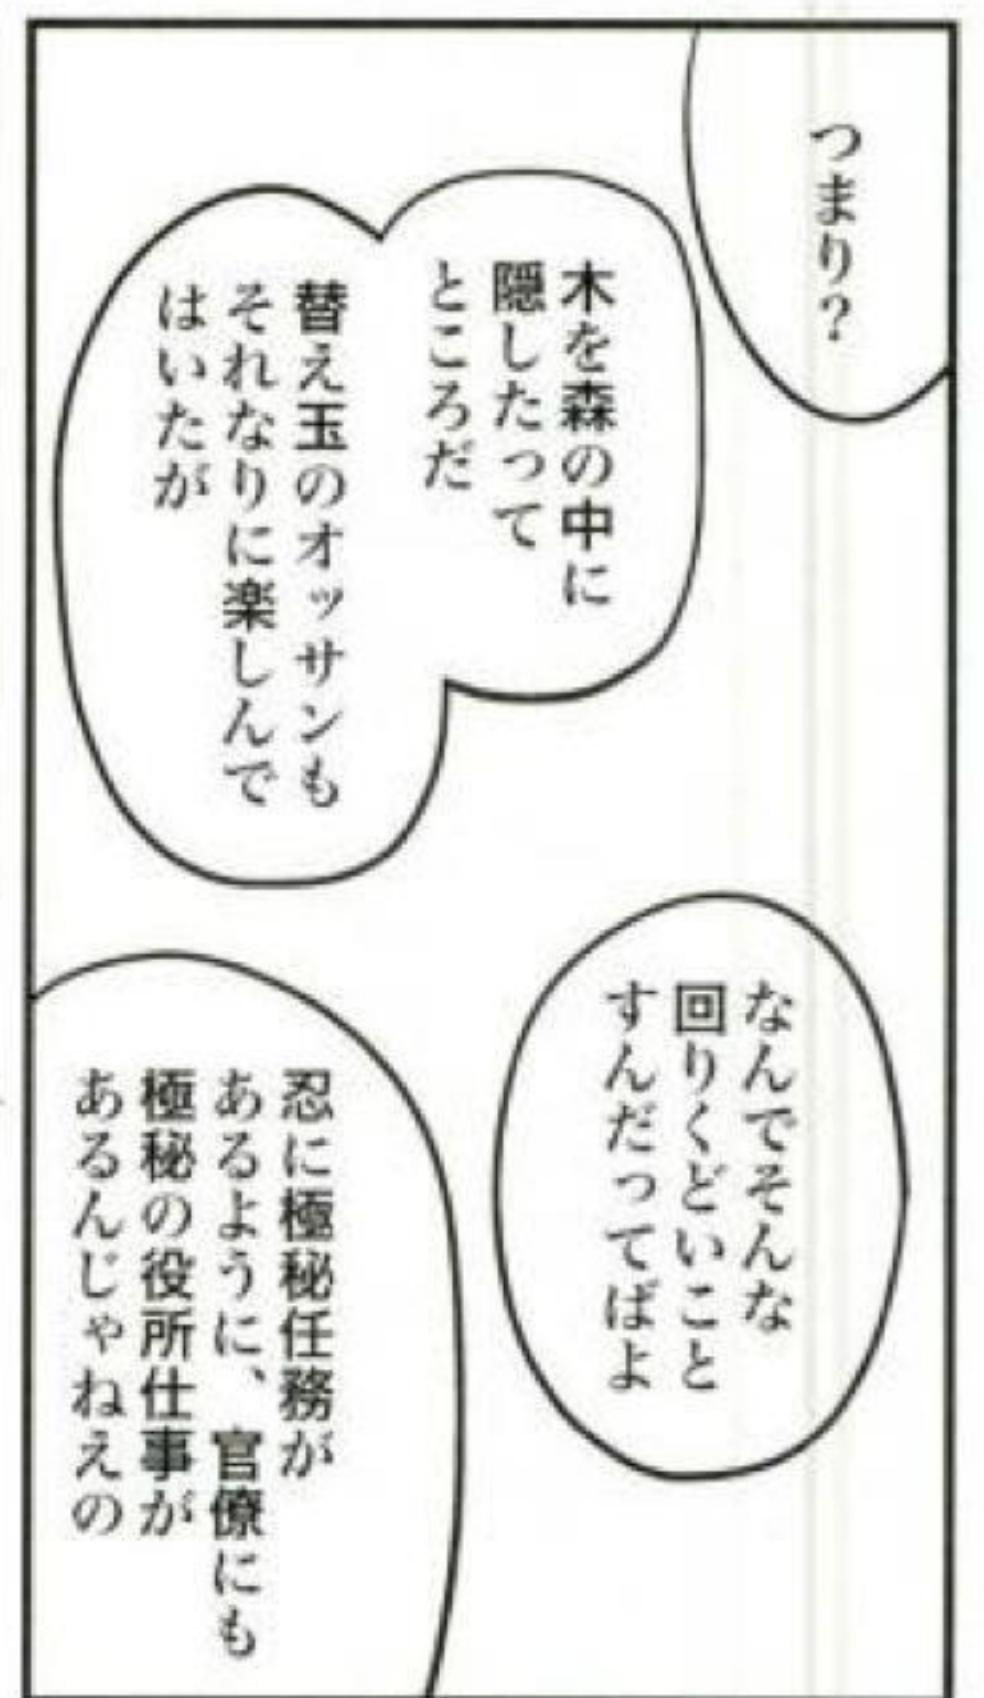 つまり?
木を森の中に
隠したって
ところだ
替え玉のオッサンも
それなりに楽しんで
はいたが
なんでそんな
回りくどいこと
すんだってばよ
忍に極秘任務が
あるように、官僚にも
極秘の役所仕事が
あるんじゃねえの